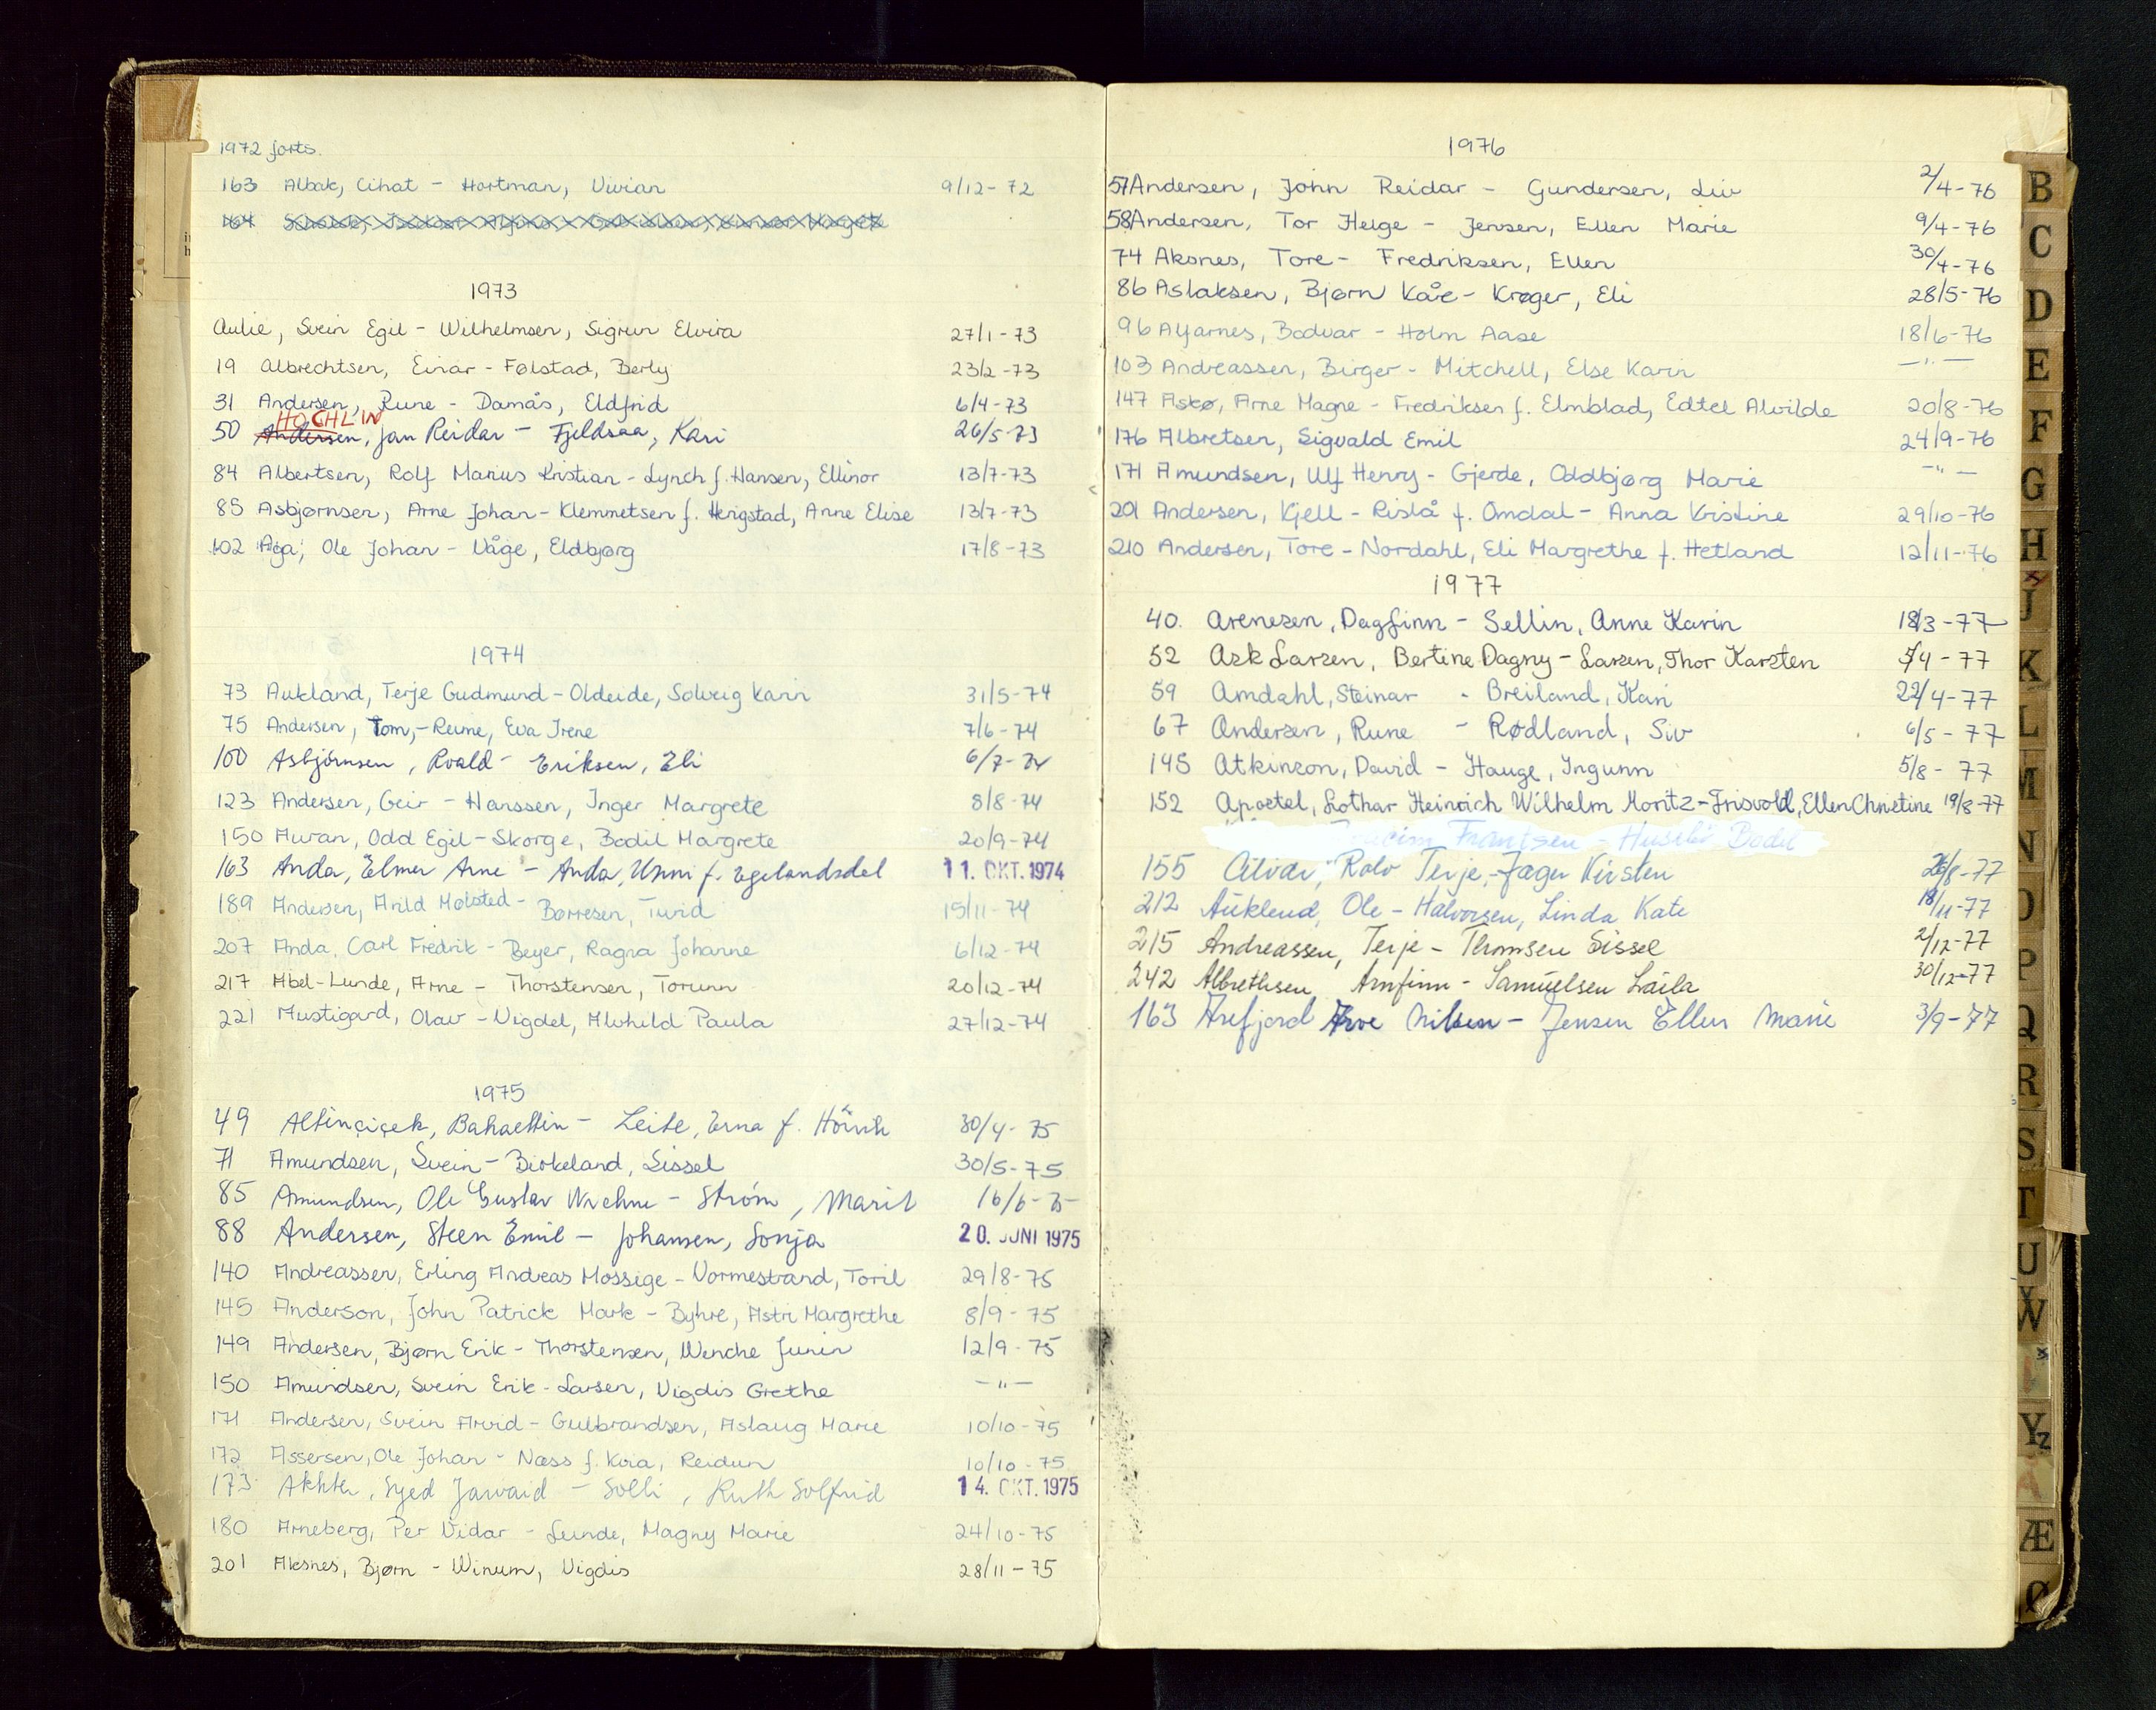 1972 forts.
163 Albak, Cihat - Hartman, Vivian 9/12-72
164
1973
Aulie, Svein Egil - Wilhelmsen, Sigrun Elvira 27/1-73
19 Albrechtsen, Einar - Følstad, Berly 23/2-73
31 Andersen, Rune - Damås, Eldfrid 6/4-73
HØCHLIN
50 Andersen, Jan Reidar - Fjeldsaa, Kari 26/5-73
84 Albertsen, Rolf Marius Kristian - Lynch f. Hansen, Ellinor 13/7-73
85 Asbjørnsen, Arne Johan - Klemmetsen f. Herigstad, Anne Elise 13/7-73
102 Aga, Ole Johan - Våge, Eldbjørg 17/8-73
1974
73 Aukland, Terje Gudmund - Oldeide, Solveig Karin 31/5-74
75 Andersen, Tom, - Reime, Eva Irene 7/6-74
100 Asbjörnsen, Roald - Eriksen, Eli 6/7-74
123 Andersen, Geir - Hanssen, Inger Margrete 8/8-74
150 Auran, Odd Egil - Skorge, Bodil Margrete 20/9-74
163 Anda, Elmer Arne - Anda, Unni f. Egelandsdal 11. OKT. 1974
189 Andersen, Arild Molsted - Børresen, Turid 15/11-74
207 Anda, Carl Fredrik - Beyer, Ragna Johanne 6/12-74
217 Abel-Lunde, Arne - Thorstensen, Torunn 20/12-74
221 Austigard, Olav - Vigdel, Alvhild Paula 27/12-74
1975
49 Altinçiçek, Bahaettin - Leite, Erna f. 30/4-75
71 Amundsen, Svein - Birkeland, Sissel 30/5-75
85 Amundsen, Ole Gustav - Ström, Marit 16/6-75
88 Andersen, Steen Emil - Johansen, Sonja 20. JUNI 1975
140 Andreassen, Erling Andreas Mossige - Vormestrand, Toril 29/8-75
145 Anderson, John Patrick Mark - Byhre, Astri Margrethe 8/9-75
149 Andersen, Bjørn Erik - Thorstensen, Wenche Junin 12/9-75
150 Amundsen, Svein Erik - Larsen, Vigdis Grethe -"-
171 Andersen, Svein Arvid - Gulbrandsen, Aslaug Marie 10/10-75
172 Assersen, Ole Johan - Næss f. Kvia, Reidun 10/10-75
173 Akhter, Syed Jawaid - Solli, Ruth Solfrid 14. OKT. 1975
180 Arneberg, Per Vidar - Lunde, Magny Marie 24/10-75
201 Aksnes, Bjørn - Winum, Vigdis 28/11-75
1976
57 Andersen, John Reidar - Gundersen, Liv 2/4-76
58 Andersen, Tor Helge - Jensen, Ellen Marie 9/4-76
74 Aksnes, Tore - Fredriksen, Ellen 30/4-76
86 Aslaksen, Bjørn Kåre - Krøger, Eli 28/5-76
96 Alfarnes, Bodvar - Holm Aase 18/6-76
103 Andreassen, Birger - Mitchell, Else Karin -"-
147 Askø, Arne Magne - Fredriksen f. Elmblad, Edtel Alvilde 20/8-76
176 Albretsen, Sigvald Emil 24/9-76
171 Amundsen, Ulf Henry - Gjerde, Oddbjørg Marie -"-
201 Andersen, Kjell - Rislå f. Omdal - Anna Kristine 29/10-76
210 Andersen, Tore - Nordahl, Eli Margrethe f. Hetland 12/11-76
1977
40. Arenesen, Dagfinn - Sellin, Anne Karin 18/3-77
52 Ask Larsen, Bertine Dagny - Larsen, Thor Karsten /4-77
59 Amdahl, Steinar - Breiland, Kari 22/4-77
67 Andersen, Rune - Rødland, Siv 6/5-77
145 Atkinson, David - Hauge, Ingunn 5/8-77
152 Apostel, Lothar Heinrich Wilhelm Moritz - Frisvold, Ellen Christine 19/8-77
Frantsen - Bodil
155 Alvar, Rolv Terje, - Jager Kirsten 26/8-77
212 Auklend, Ole - Halvorsen, Linda Kate 18/11-77
215 Andreassen, Terje - Thomsen Sissel 2/12-77
242 Albrethsen Arnfinn - Samuelsen Laila 30/12-77
163 Arefjord Arve Nilsen - Jensen Ellen Marie 3/9-77
B
C
D
E
F
G
H
J
K
L
M
N
O
P
Q
R
S
T
U
W
Y
Z
Æ
Ø